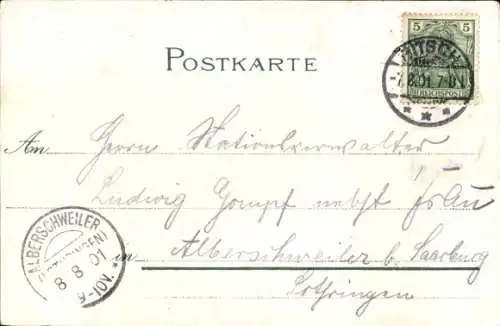 5 5
BITSCH
7.8.01. 7-8 N.
REICHSPOST
POSTKARTE
An Herrn Stationsverwalter
Ludwig Gompf nebst Frau
ALBERSCHWEILER
(LOTHRINGEN)
8 8 01
9-10V.
in Alberschweiler b. Saarburg
Lothringen